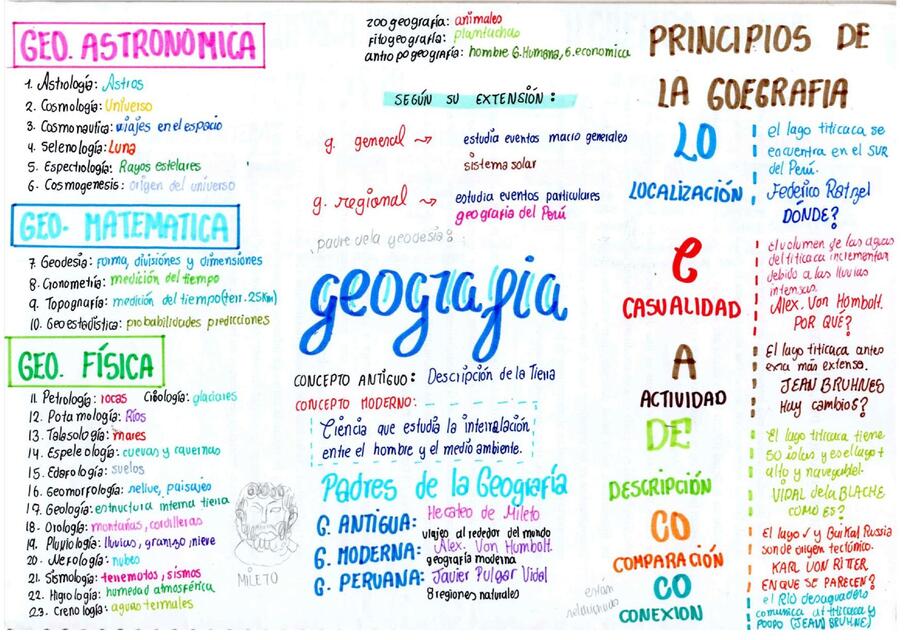 GEO. ASTRONOMICA
1. Astrología: Astros
2. Cosmología: Universo
3. Cosmonautica: viajes en el espacio
4. Selenología: Luna
5. Espectrología: Rayos estelares
6. Cosmogenesis: origen del universo
GEO. MATEMATICA
7. Geodesia: forma, divisiones y dimensiones
8. Cronometría: medición del tiempo
9. Topografía: medición del tiempo (terr. 25Km)
10. Geoestadística: probabilidades predicciones
GEO. FÍSICA
11. Petrología: rocas Criología: glaciares
12. Potamología: Ríos
13. Talasología: mares
14. Espeleología: cuevas y cavernas
15. Edafología: suelos
16. Geomorfología: relieve, paisajes
17. Geología: estructura interna tierra
18. Orología: montañas, cordilleras
19. Pluviología: lluvias, granizo, nieve
20. Nefología: nubes
21. Sismología: terremotos, sismos
22. Higrología: humedad atmosférica
23. Crenología: aguas termales
MILETO
zoogeografía: animales
fitogeografía: plantuchas
antropogeografía: hombre G. Humana, G. economica
SEGÚN SU EXTENSIÓN:
g. general → estudia eventos macro generales
sistema solar
g. regional → estudia eventos particulares
geografia del Perú
padre de la geodesia:
geografia
CONCEPTO ANTIGUO: Descripción de la Tierra
CONCEPTO MODERNO:
Ciencia que estudia la interrelación
entre el hombre y el medio ambiente.
Padres de la Geografía
G. ANTIGUA: Hecateo de Mileto
viajes al rededor del mundo
G. MODERNA: Alex. Von Humbolt.
geografía moderna
G. PERUANA: Javier Pulgar Vidal
8 regiones naturales
están
relacionados
PRINCIPIOS DE
LA GOEGRAFIA
LO
LOCALIZACIÓN
el lago titicaca se
encuentra en el SUR
del Perú.
Federico Ratzel
DÓNDE?
C
CASUALIDAD
El volumen de las aguas
del titicaca incrementan
debido a las lluvias
intensas.
Alex. Von Hombolt.
POR QUÉ?
A
ACTIVIDAD
El lago titicaca antes
era más extenso.
JEAN BRUHNES
Hay cambios?
DE
DESCRIPCIÓN
El lago titicaca tiene
50 islas y es el lago +
alto y navegable.
VIDAL de la BLACHE
COMO ES?
CO
COMPARACIÓN
El lago y Baikal Russia
son de origen tectónico.
KARL VON RITTER
EN QUE SE PARECEN?
CO
CONEXION
el RIO desaguadero
comunica al titicaca y
POOPO (JEAN BRUHNE)